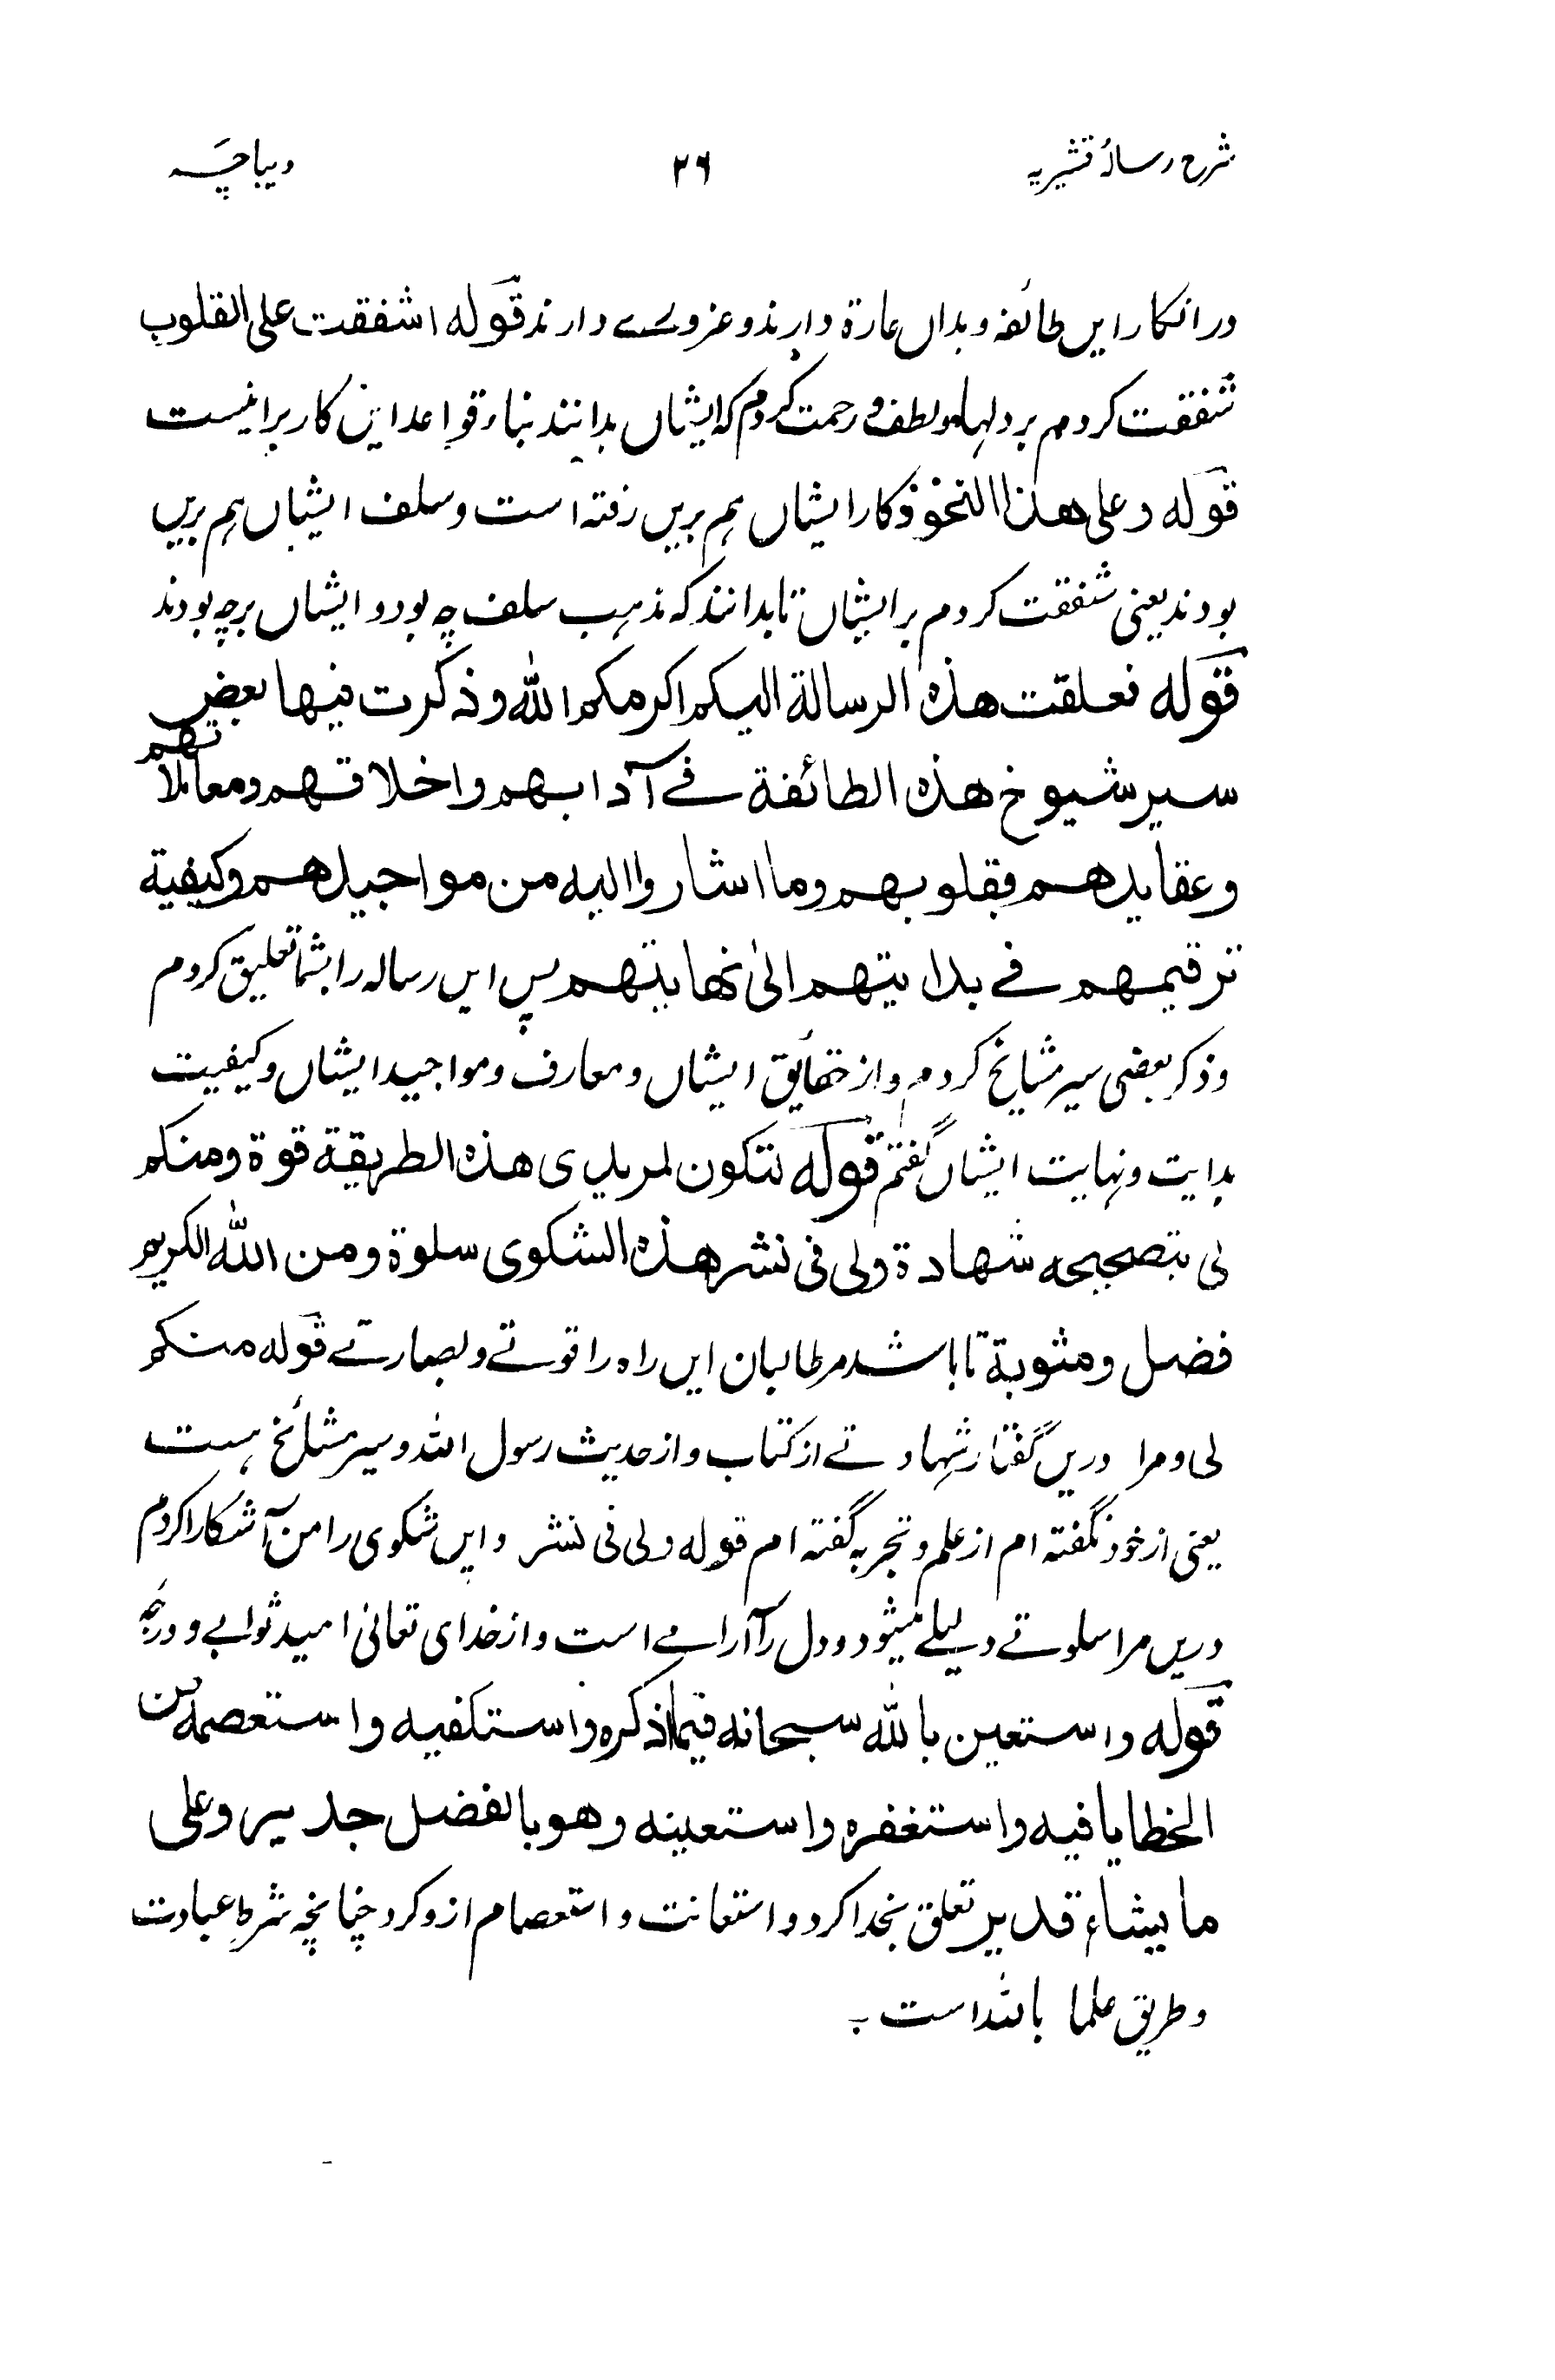 شرح رسالۂ قشیریہ ۲۶ دیباچہ
در انکار ایں طائفہ و بداں عارۃ دارند و عزوے دارند قولہ اشفقت علی القلوب
شفقت کردم بر دلہا و لطف و رحمت کردم کہ ایشاں بدانند بناء قواعد این کار برانیست
قولہ و علی ھذا النحو و کار ایشاں ہم بریں رفتہ است و سلف ایشاں ہم بریں
بودند یعنی شفقت کردم بر ایشاں تا بدانند کہ مذہب سلف چہ بود و ایشاں برچہ بودند
قولہ فعلقت ھذہ الرسالة الیکم اکرمکم اللہ وذکرت فیھا بعض
سیر شیوخ ھذہ الطائفة فے آدابھم واخلاقھم ومعاملاتھم
وعقایدھم بقلوبھم وما اشاروا الیہ من مواجیدھم وکیفیة
ترقیھم فے بدایتھم الیٰ نھایتھم پس ایں رسالہ را بشما تعلیق کردم
و ذکر بعضی سیر مشایخ کردم و از حقایٔق ایشاں و معارف و مواجید ایشاں و کیفیت
بدایت و نہایت ایشاں گفتم قولہ لتکون لمریدی ھذہ الطریقة قوة ومنکم
لی بتصحیحہ شھادة ولی فی نشر ھذہ الشکوی سلوة ومن اللہ الکریم
فضل ومثوبة تا باشد مر طالبان ایں راہ را قوتے و بصارتے قولہ منکم
لی و مرا دریں گفتار شہادتے از کتاب و از حدیث رسول اللہ و سیر مشائخ ہست
یعنی از خود نگفتہ ام از علم و تجربہ گفتہ ام قولہ ولی فی نشر و ایں شکوی را من آشکارا کردم
دریں مرا سلوتے دلیلے میشود و دل را آرامے است و از خدای تعالیٰ امید ثوابے و درجۂ
قولہ واستعین باللہ سبحانہ فیما اذکرہ واستکفیہ واستعصمہ من
الخطایا فیہ واستغفرہ واستعینہ وھو بالفضل جدیر وعلی
ما یشاء قدیر تعلق بخدا کرد و استعانت و استعصام ازو کرد چنانچہ شرط عبادت
و طریق علما باللہ است ۔